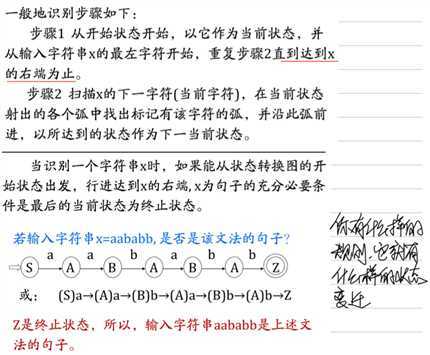 一般地识别步骤如下：
步骤1 从开始状态开始，以它作为当前状态，并
从输入字符串x的最左字符开始，重复步骤2直到达到x
的右端为止。
步骤2 扫描x的下一字符(当前字符)，在当前状态
射出的各个弧中找出标记有该字符的弧，并沿此弧前
进，以所达到的状态作为下一当前状态。
当识别一个字符串x时，如果能从状态转换图的开
始状态出发，行进达到x的右端，x为句子的充分必要条
件是最后的当前状态为终止状态。
若输入字符串x=aababb，是否是该文法的句子？
a a b a b b
S A B A B A Z
或： (S)a→(A)a→(B)b→(A)a→(B)b→(A)b→Z
Z是终止状态，所以，输入字符串aababb是上述文
法的句子。
你有什么样的
规则，它就有
什么样的状态
变迁